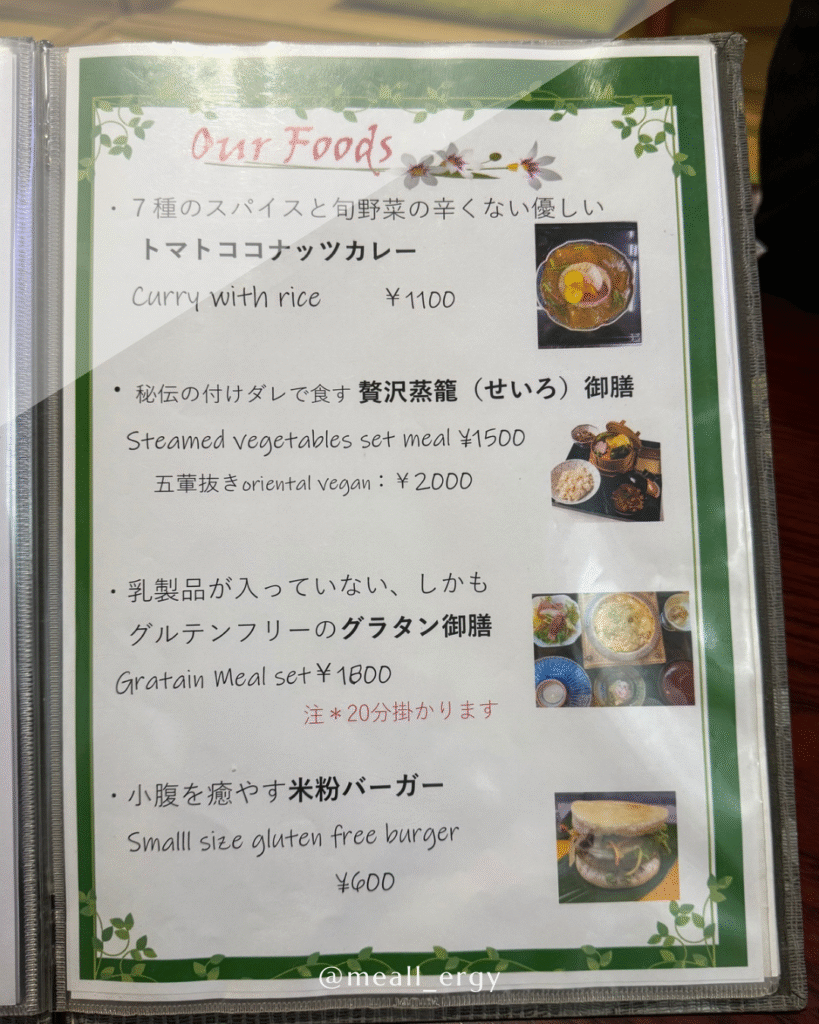 Our Foods
・７種のスパイスと旬野菜の辛くない優しい
トマトココナッツカレー
Curry with rice ￥1100
・秘伝の付けダレで食す 贅沢蒸籠（せいろ）御膳
Steamed vegetables set meal ¥1500
五葷抜きoriental vegan：￥2000
・乳製品が入っていない、しかも
グルテンフリーのグラタン御膳
Gratain Meal set￥1800
注＊20分掛かります
・小腹を癒やす米粉バーガー
Smalll size gluten free burger
¥600
@meall_ergy